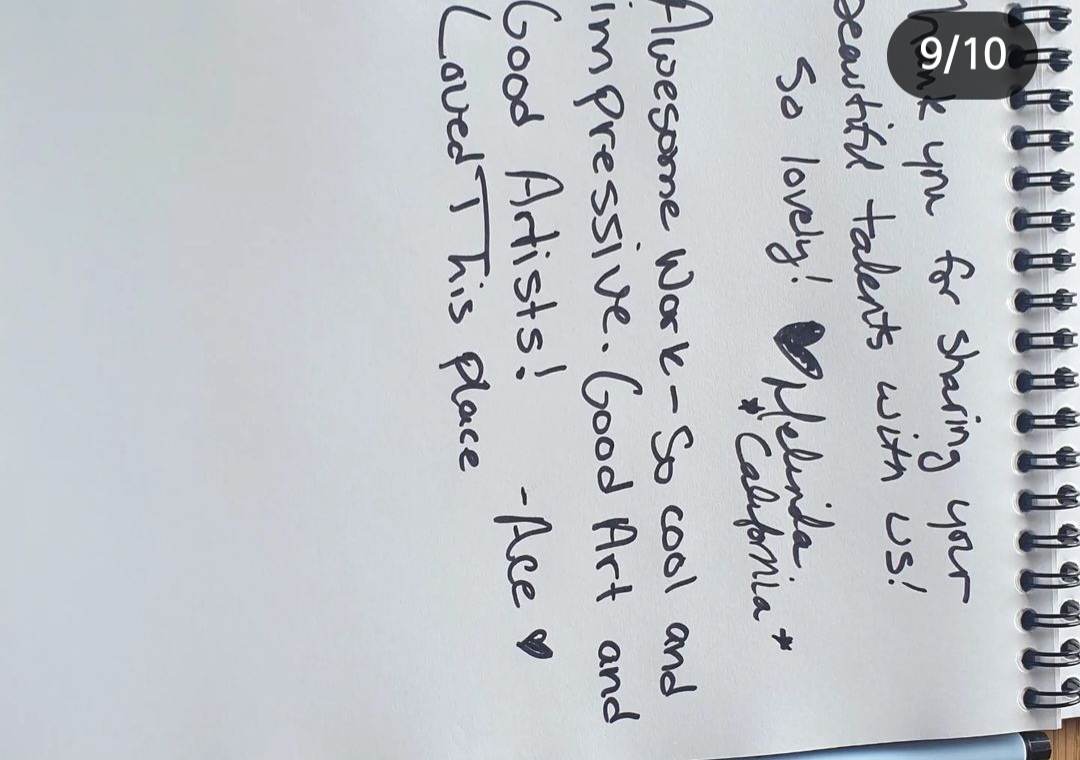 9/10
Thank you for sharing your
beautiful talents with us!
So lovely! ♥ Melinda
*California*
Awesome Work - So cool and
impressive. Good Art and
Good Artists! -Ace ♥
Loved This place